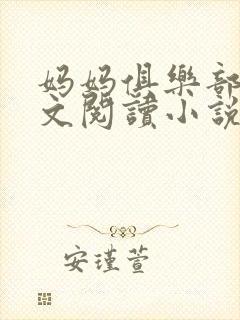 妈妈俱樂部
文閱讀小說
安瑾萱